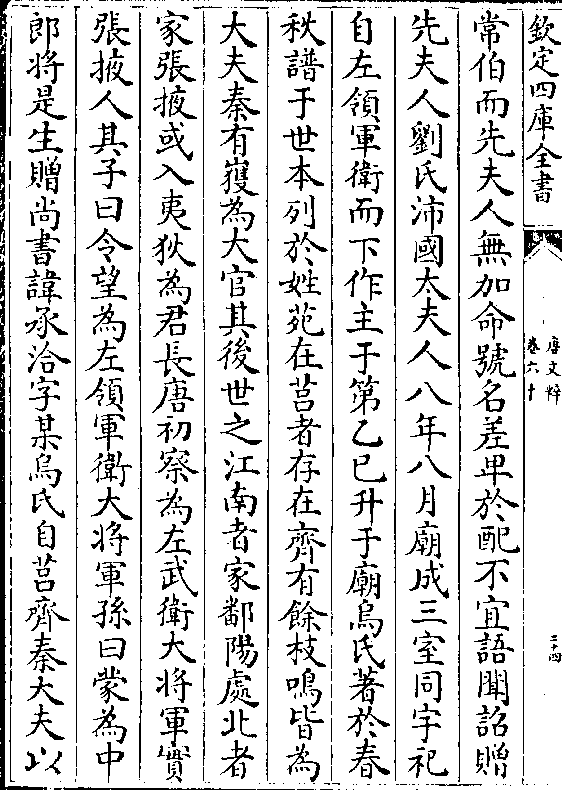 欽定四庫全書
唐文粹
卷六十
二十四
常伯而先夫人無加命號名差卑於配不宜語聞詔贈
先夫人劉氏沛國太夫人八年八月廟成三室同宇祀
自左領軍衛而下作主于第乙巳升于廟烏氏著於春
秋譜于世本列於姓苑在莒者存在齊有餘枝鳴皆為
大夫秦有㺉為大官其後世之江南者家鄱陽處北者
家張掖或入夷狄為君長唐初察為左武衛大將軍實
張掖人其子曰令望為左領軍衛大將軍孫曰蒙為中
郎將是生贈尚書諱承洽字某烏氏自莒齊秦大夫以